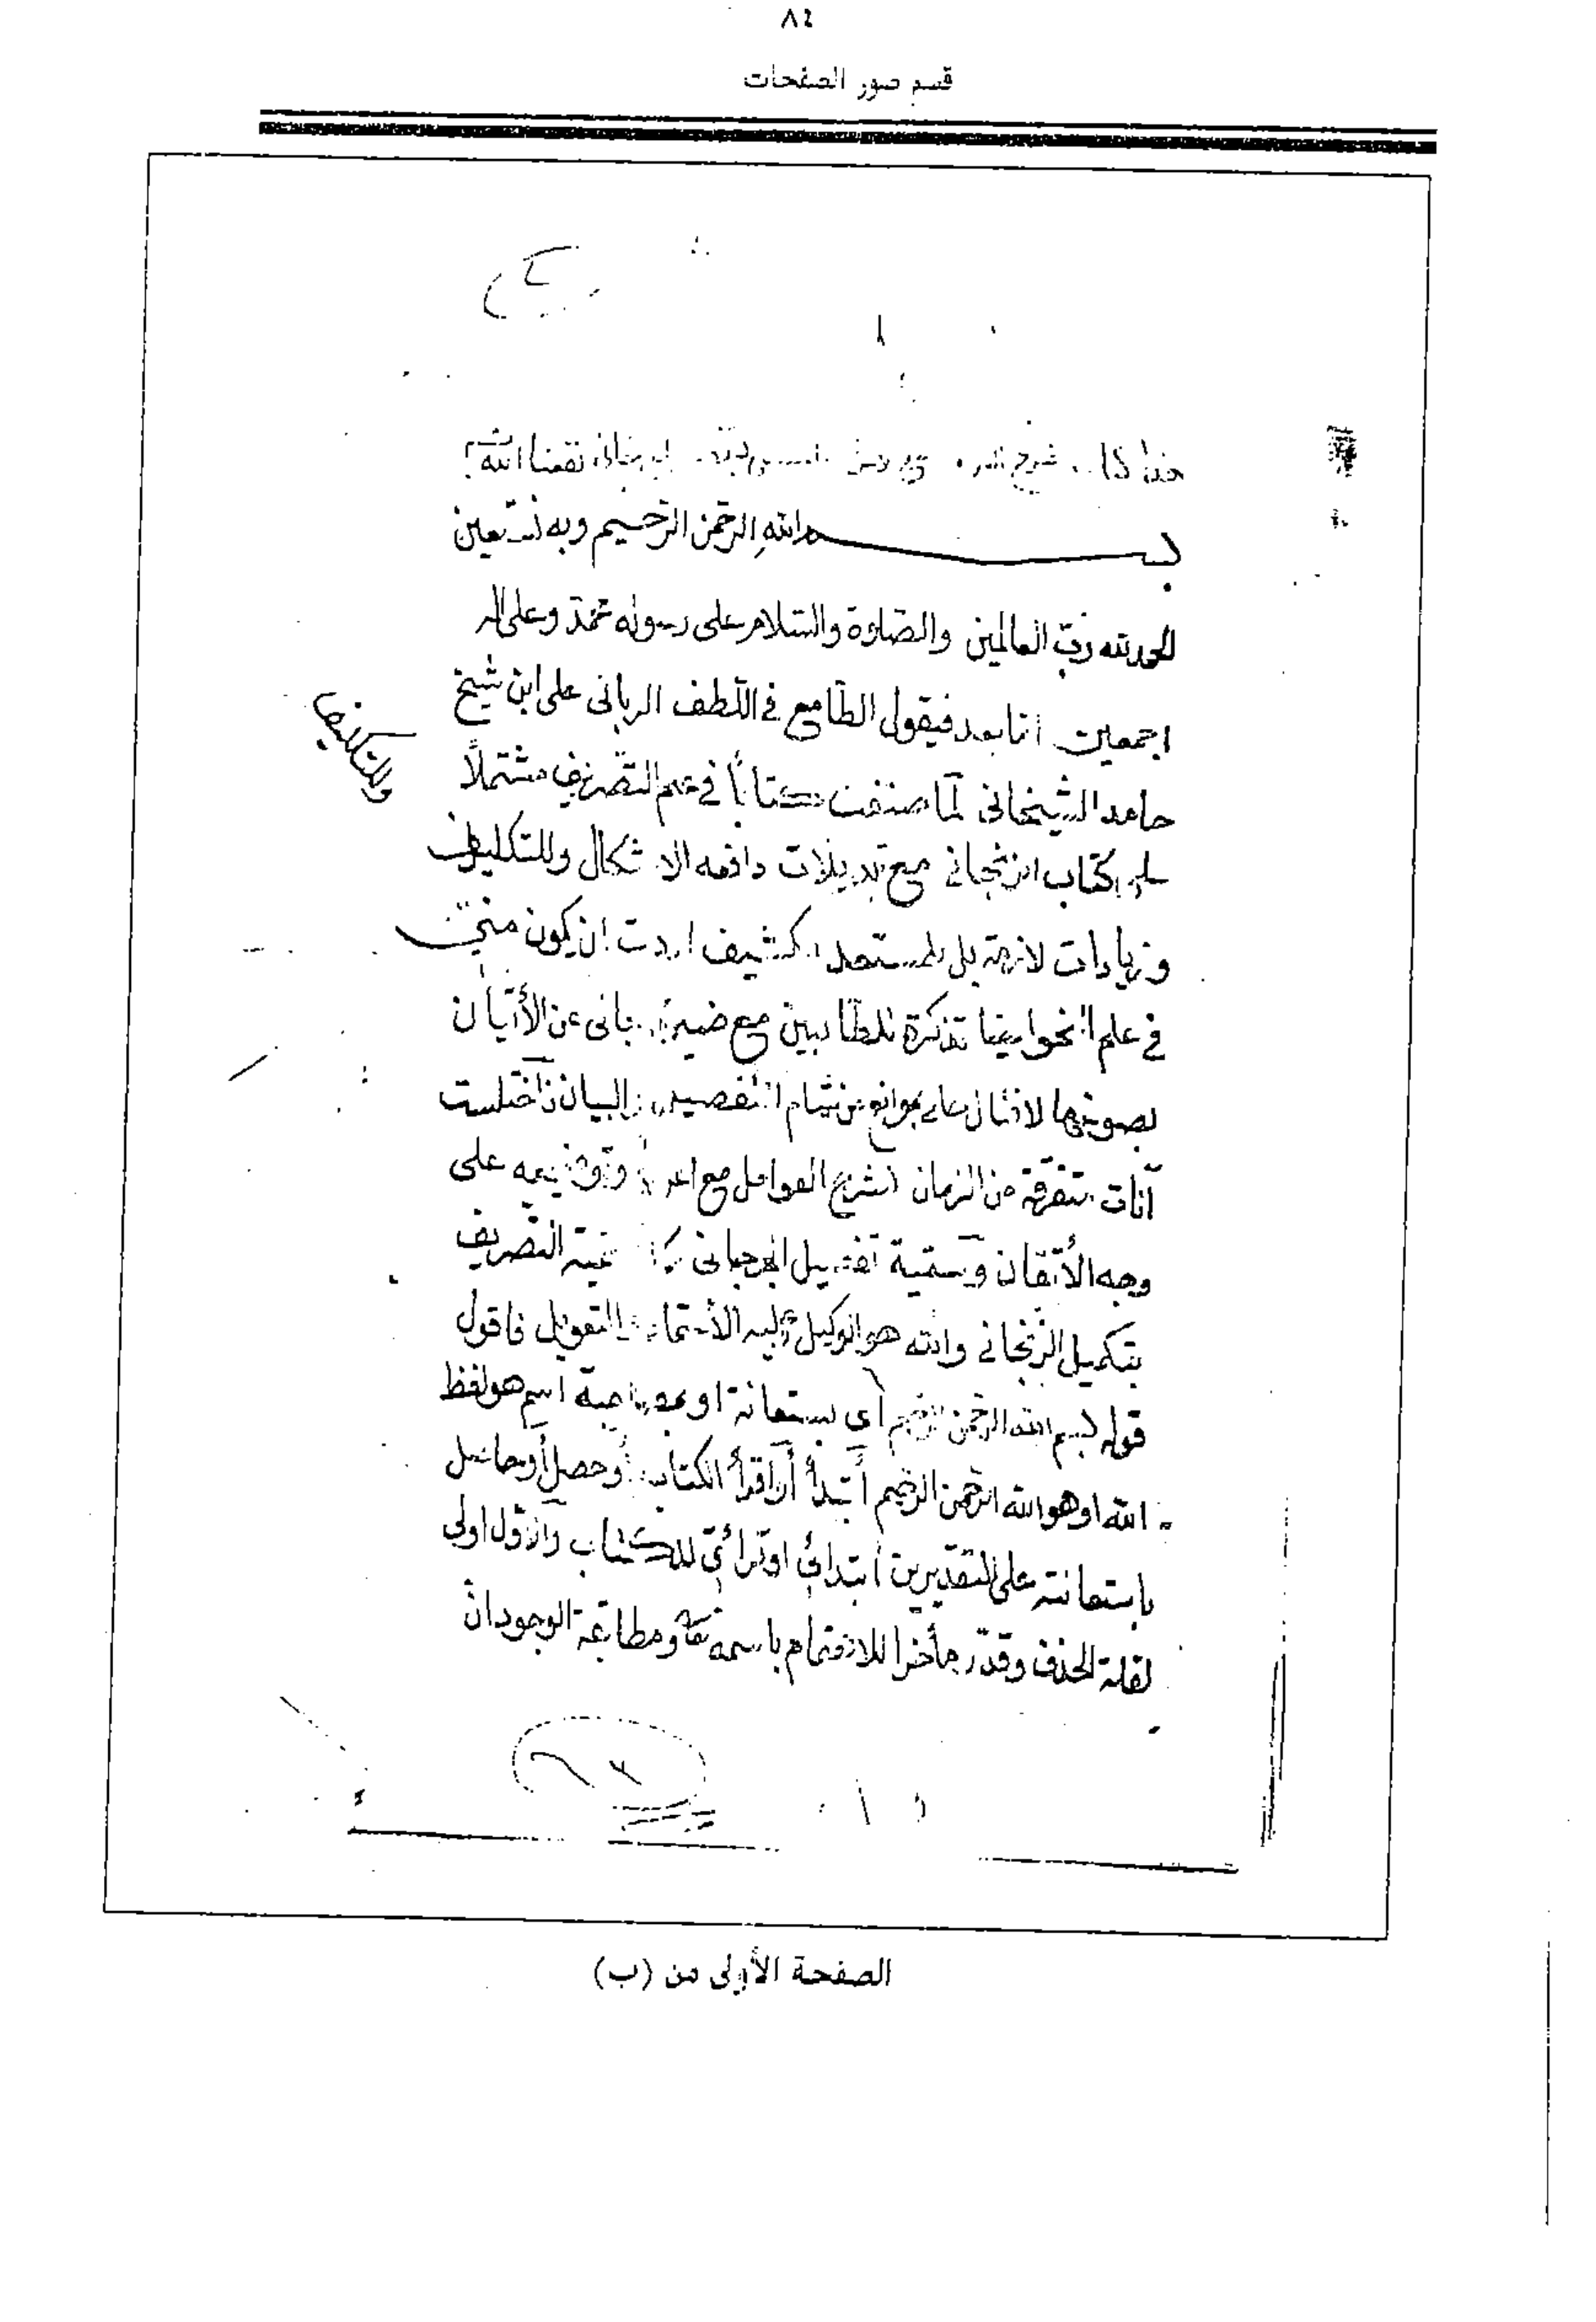 ٨٤
قسم صور الصفحات
هذا شرح نفعنا الله
بسم الله الرحمن الرحيم وبه نستعين
الحمد لله رب العالمين والصلوة والسلام على رسوله محمد وعلى اله
اجمعين اما بعد فيقول الطامع في اللطف الرباني على ابن شيخ
حامد الشيخاني لما صنفت كتابًا في علم التصريف مشتملًا
كتاب الزنجاني مع تبديلات دافعه الاشكال وللتكليف
وللتكليف
وزيادات لازمة بل اردت ان يكون مني
في علم النحو ايضا تذكرة للطالبين مع عن الأتيان
بصونها موانع عن تمام التفصيل والبيان فاختلست
آنات متفرقة من الزمان لشرح العوامل مع وتوضيحه على
وجه الأتقان وسميته تفصيل الجرجاني التصريف
بتكميل الزنجاني والله هو الوكيل واليه الأعتماد والتعويل فاقول
قوله بسم الله الرحمن الرحيم أي بستعانة او بمصاحبة اسم هو لفظ
الله او هو الله الرحمن الرحيم أبتدأ أو أقرأ الكتاب أو حصل أو حاصل
باستعانته على التقديرين ابتدائي او قرائتي للكتاب والاول اولى
لقلة الحذف وقدر مأخرا للاهتمام باسمه تعا ومطابقة الوجود اذ
الصفحة الأولى من (ب)